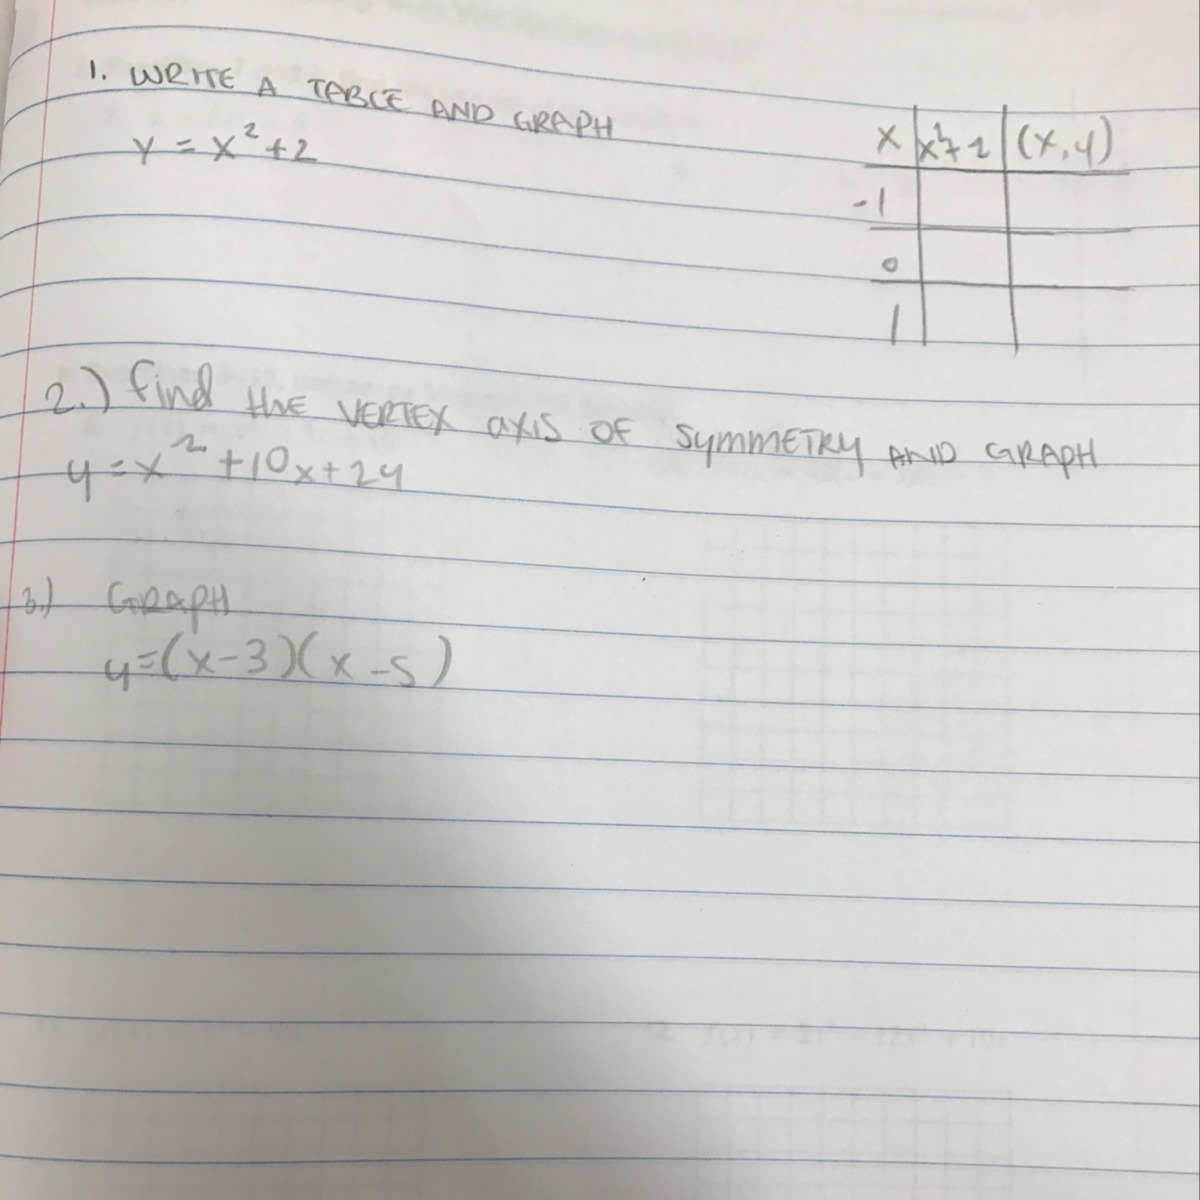 1. WRITE A TABLE AND GRAPH
y = x²+2
x | x²+2 | (x,y)
-1
0
1
2.) find the VERTEX axis OF symmETRy AND GRAPH
y=x²+10x+24
3.) GRAPH
y=(x-3)(x-5)